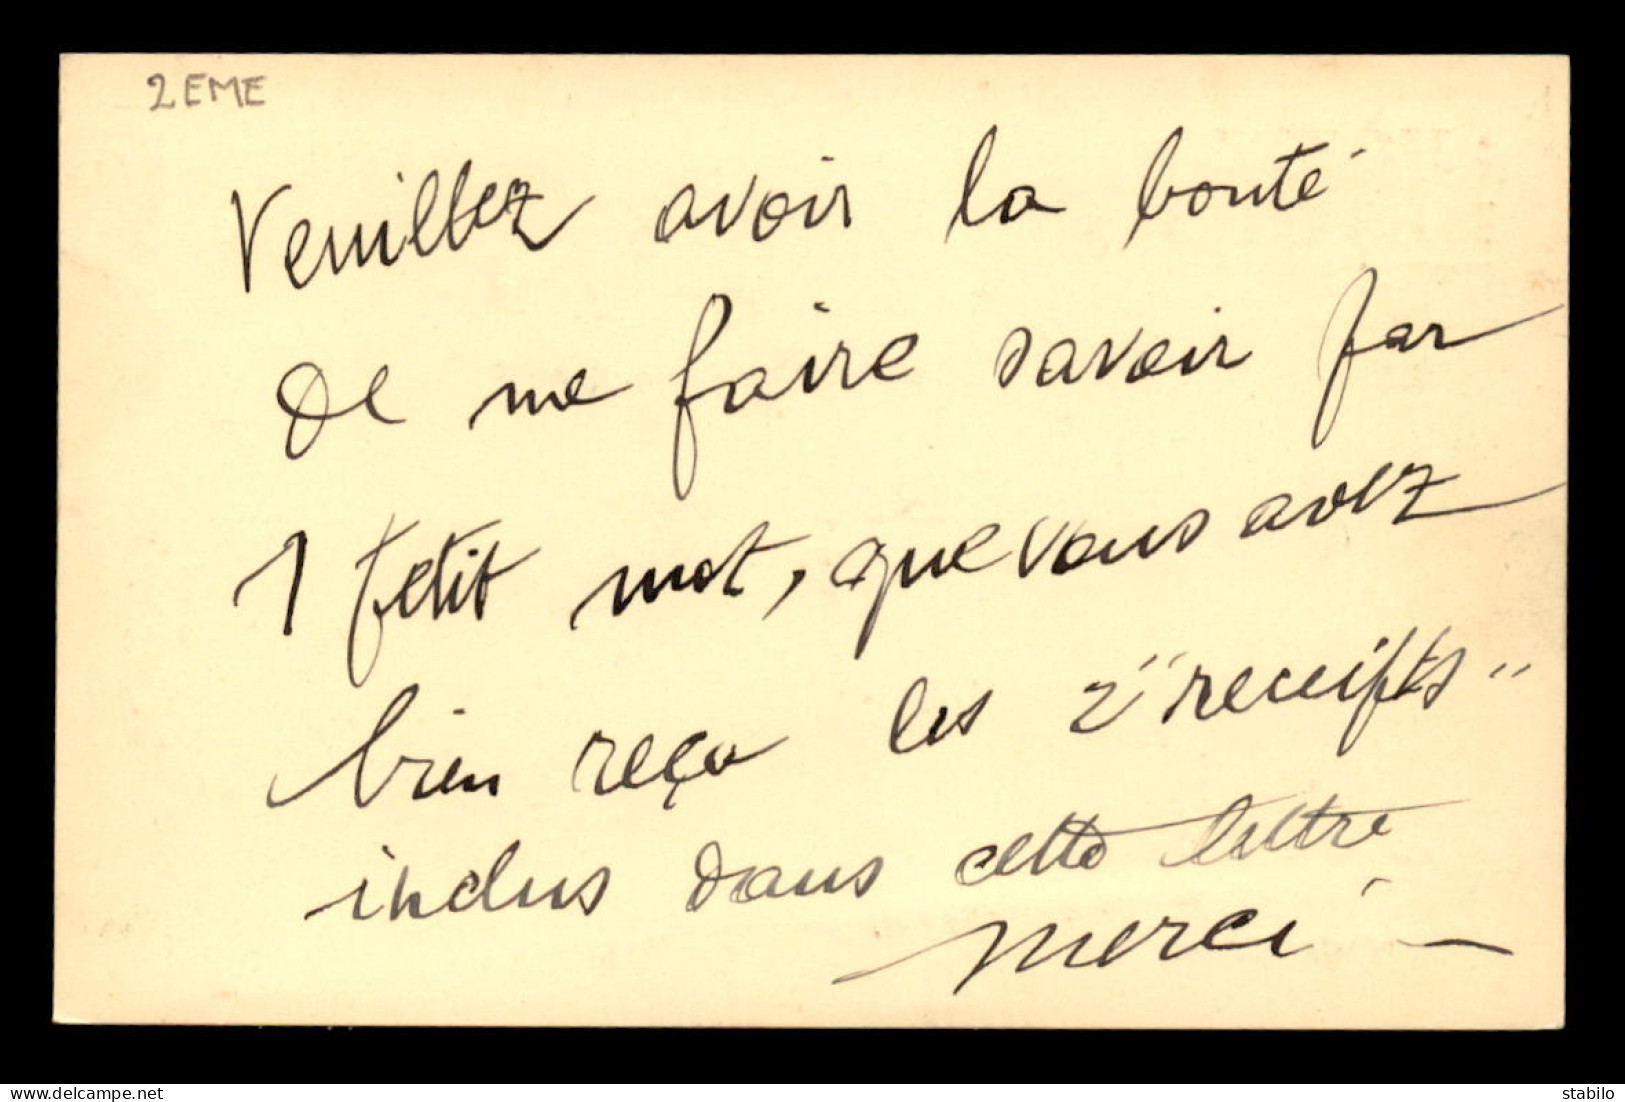 2EME
Veuillez avoir la bonté
de me faire savoir par
1 petit mot, que vous avez
bien reçu les 2 "receifts"
inclus dans cette lettre
merci —
www.delcampe.net
stabilo